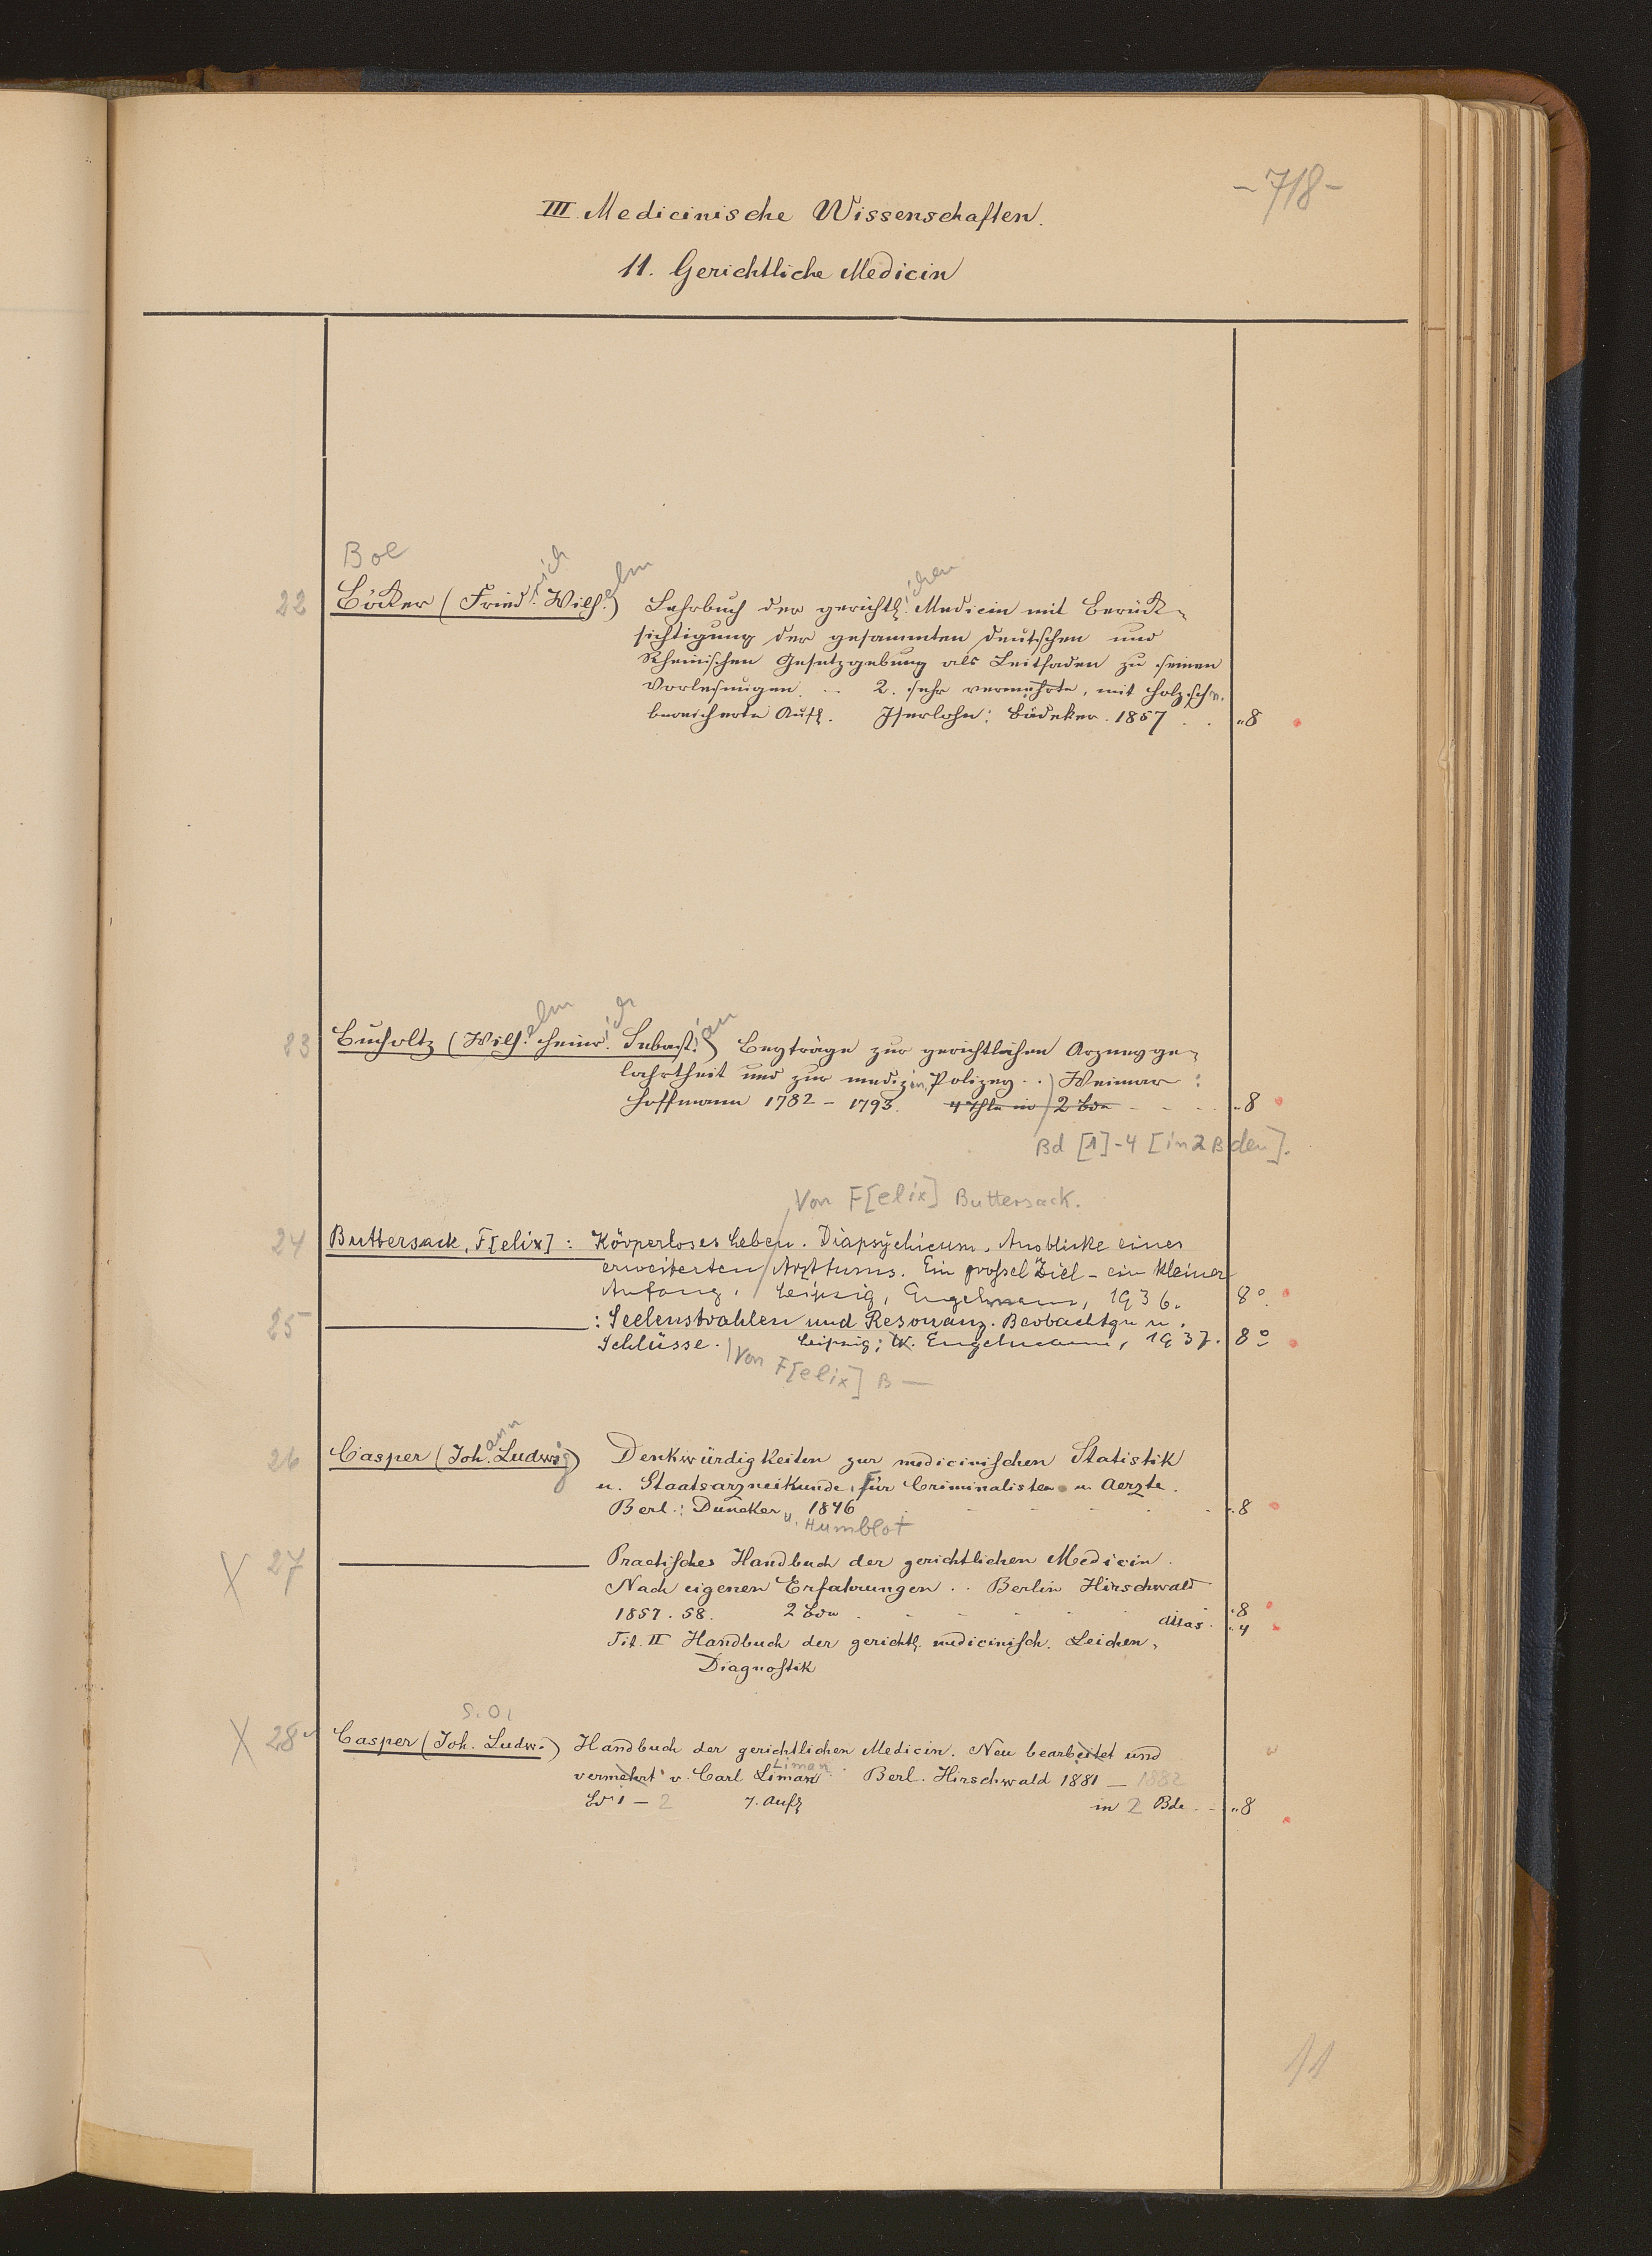 -718-
III. Medicinische Wissenschaften.
11. Gerichtliche Medicin
Boe
22 Böcker (Friedrich Wilhelm) Lehrbuch der gerichtlichen Medicin mit Berück-
sichtigung der gesammten deutschen und
Rheinischen Gesetzgebung als Leitfaden zu seinen
Vorlesungen. .. 2. sehr vermehrte, mit Holzschn.
bereicherte Aufl. Iserlohn: Bädeker. 1857 . . „8
23 Bucholtz (Wilhelm Heinrich Sebastian) Beyträge zur gerichtlichen Arzneyge-
lahrtheit und zur medizin. Polizey . . Weimar:
Hoffmann 1782 - 1793. 4 Thle in 2 Bdn - - - „8
Bd [1]-4 [in 2 Bden].
Von F[elix] Buttersack.
24 Buttersack, F[elix]: Körperloses Leben. Diapsychicum. Ausblicke eines
erweiterten Arzttums. Ein grosses Ziel - ein kleiner
Anfang. Leipzig, Engelmann, 1936. 8°.
25 : Seelenstrahlen und Resonanz. Beobachtgn u.
Schlüsse. Leipzig; W. Engelmann, 1937. 8°
Von F[elix] B—
26 Casper (Johann Ludwig) Denkwürdigkeiten zur medicinischen Statistik
u. Staatsarzneikunde, für Criminalisten u. Aerzte.
Berl.: Duncker 1846 - - - - „8
u. Humblot
X 27 Practisches Handbuch der gerichtlichen Medicin.
Nach eigenen Erfahrungen . . Berlin Hirschwald
1857. 58. 2 Bde - - - - „8
Atlas. „4
Tit. II Handbuch der gerichtl. medicinisch. Leichen-
Diagnostik
S. O.
X 28 Casper (Joh. Ludw.) Handbuch der gerichtlichen Medicin. Neu bearbeitet und
vermehrt v. Carl Liman Liman. Berl. Hirschwald 1881 — 1882
Bd 1 - 2 7. Aufl in 2 Bde. - „8
11